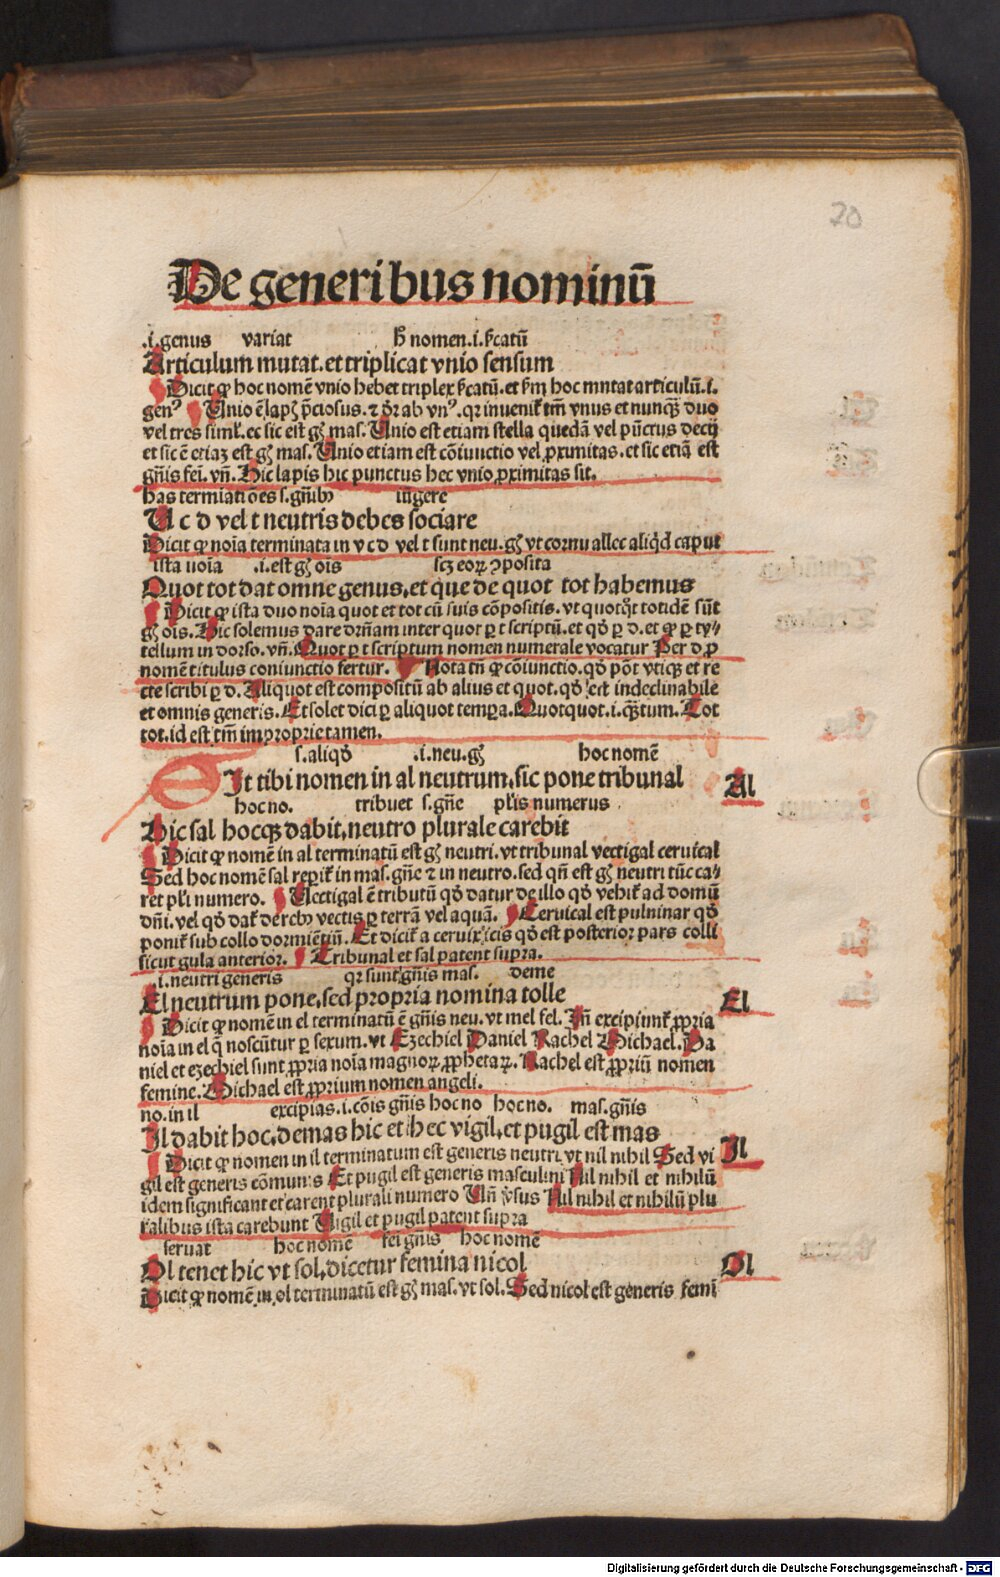 20
De generibus nominū
.i.genus variat hͦ nomen.i.ſcatū
Articulum mutat.et triplicat vnio sensum
Dicit ꝙ hoc nomē vnio hebet triplex ſcatū.et ſm hoc mntat articulū.i.
genꝰ Unio ē lapꝫ p̄ciosus.⁊ dꝛ ab vnꝰ.qꝛ inueniť tm̄ vnus et nunqꝫ duo
vel tres simľ.ec sic est gꝫ mas. Unio est etiam stella quedā vel pūctus decij
et sic ē etiaꝫ est gꝫ mas. Unio etiam est cōiunctio vel ꝓximitas.et sic etiā est
gn̄is fei.vn̄. Hic lapis hic punctus hec vnio ꝓximitas sit.
has termiatiōes s.gn̄ibꝫ iūgere
U c d vel t neutris debes sociare
Dicit ꝙ noīa terminata in v c d vel t sunt neu.gꝫ vt cornu allec aliqd caput
ista noīa .i.est gꝫ oīs scꝫ eoꝝ ꝯposita
Quot tot dat omne genus.et que de quot tot habemus
Dicit ꝙ ista duo noīa quot et tot cū suis cōpositis.vt quotqͦt totidē sūt
gꝫ oīs. Hic solemus dare drn̄am inter quot ꝑ t scriptū.et qd̓ ꝑ d.et ꝙ ꝑ ty⸗
tellum in dorso.vn̄. Quot ꝑ t scriptum nomen numerale vocatur Per d ꝓ
nomē titulus coniunctio fertur. Nota tn̄ ꝙ cōiunctio.qd̓ pōt vtiqꝫ et re
cte scribi ꝑ d. Aliquot est compositū ab alius et quot.qd̓ est indeclinabile
et omnis generis. Et solet dici ꝑ aliquot tempꝑa. Quotquot.i.qꝫtum. Tot
tot.id est tm̄ improprie tamen.
s.aliqd̓ .i.neu.gꝫ hoc nomē
Sit tibi nomen in al neutrum.sic pone tribunal
Al
hoc no. tribuet s.gn̄e plīs numerus
Hic sal hocqꝫ dabit.neutro plurale carebit
Dicit ꝙ nomē in al terminatū est gꝫ neutri.vt tribunal vectigal ceruical
Sed hoc nomē sal reꝑiť in mas.gn̄e ⁊ in neutro.sed qn̄ est gꝫ neutri tūc ca⸗
ret pl̓i numero. Uectigal ē tributū qd̓ datur de illo qd̓ vehiť ad domū
dn̄i.vel qd̓ dať de rebꝫ vectis ꝑ terrā vel aquā. Ceruical est puluinar qd̓
poniť sub collo dormiētiū. Et diciť a ceruix icis qd̓ est posterior pars colli
sicut gula anterior. Tribunal et sal patent supra.
.i.neutri generis qꝛ sunt gn̄is mas. deme
El neutrum pone.sed propria nomina tolle
El
Dicit ꝙ nomē in el terminatū ē gn̄is neu.vt mel fel. In̄ excipiunť ꝓpria
noīa in el q̄ noscūtur ꝑ sexum.vt Ezechiel Daniel Rachel Michael. Da
niel et ezechiel sunt ꝓpria noīa magnoꝝ ꝓphetaꝝ. Rachel est ꝓpriū nomen
femine. Michael est ꝓprium nomen angeli.
no.in il excipias.i.cōis gn̄is hoc no hoc no. mas.gn̄is
Il dabit hoc.demas hic et hec vigil.et pugil est mas
Il
Dicit ꝙ nomen in il terminatum est generis neutri vt nil nihil Sed vi
gil est generis communis Et pugil est generis masculini Nil nihil et nihilū
idem significant et carent plurali numero Un̄ v̓sus Nil nihil et nihilū plu
ralibus ista carebunt Uigil et pugil patent supra
seruat hoc nomē fei gn̄is hoc nomē
Ol tenet hic vt sol.dicetur femina nicol
Ol
Dicit ꝙ nomē in ol terminatū est gꝫ mas.vt sol. Sed nicol est generis femī
Digitalisierung gefördert durch die Deutsche Forschungsgemeinschaft - DFG